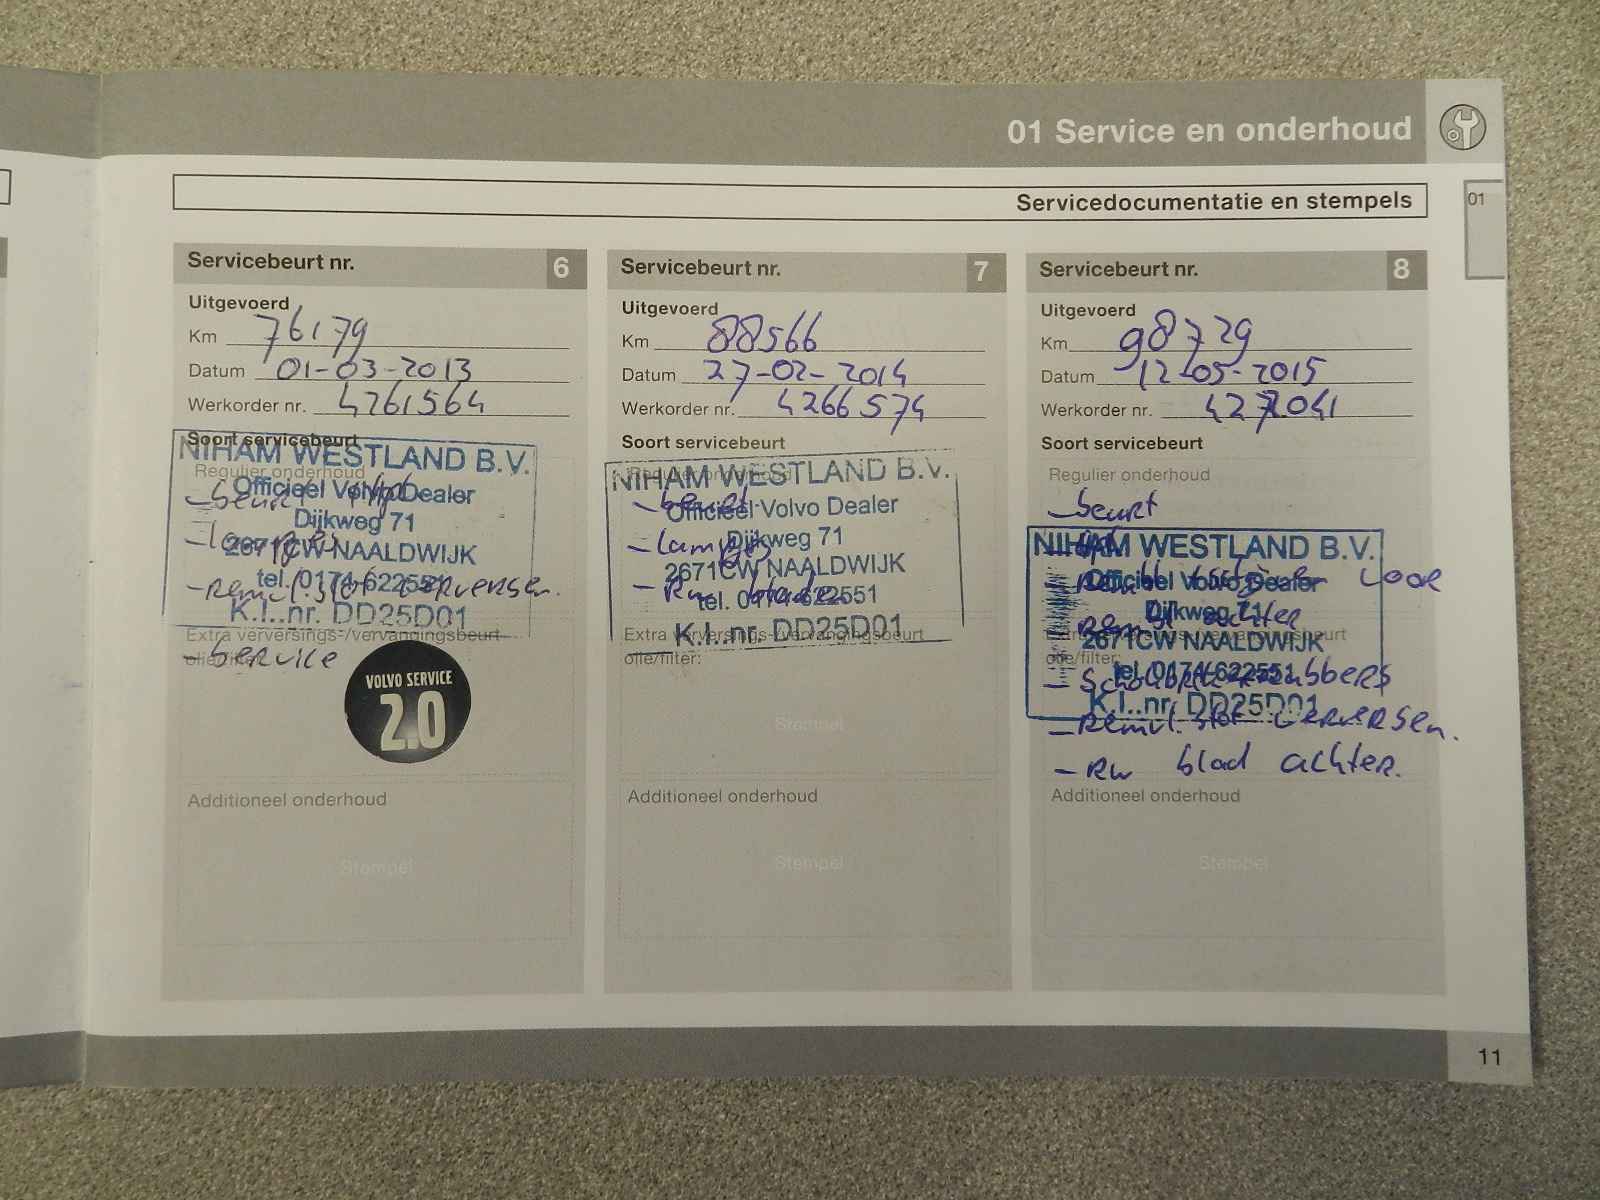 01 Service en onderhoud
Servicedocumentatie en stempels
01
Servicebeurt nr. 6
Uitgevoerd
Km 76179
Datum 01-03-2013
Werkorder nr. 4261564
Soort servicebeurt
NIHAM WESTLAND B.V.
Regulier onderhoud
Officieel Volvo Dealer
- beurt
Dijkweg 71
- lampjes
2671CW NAALDWIJK
tel. 0174-622551
- remvl. stof verversen.
K.I..nr. DD25D01
Extra verversings-/vervangingsbeurt
olie/filter:
- Service
VOLVO SERVICE
2.0
Additioneel onderhoud
Stempel
Servicebeurt nr. 7
Uitgevoerd
Km 88566
Datum 27-02-2014
Werkorder nr. 4266574
Soort servicebeurt
Regulier onderhoud
NIHAM WESTLAND B.V.
- beurt
Officieel Volvo Dealer
Dijkweg 71
- lampjes
2671CW NAALDWIJK
- Rw bladen
tel. 0174-622551
K.I..nr. DD25D01
Extra verversings-/vervangingsbeurt
olie/filter:
Stempel
Additioneel onderhoud
Stempel
Servicebeurt nr. 8
Uitgevoerd
Km 98729
Datum 12-05-2015
Werkorder nr.
Soort servicebeurt
Regulier onderhoud
- beurt
NIHAM WESTLAND B.V.
Officieel Volvo Dealer
voor
Dijkweg 71
achter
Extra verversings-/vervangingsbeurt
2671CW NAALDWIJK
olie/filter:
tel. 0174-622551
K.I..nr. DD25D01
- remvl. stof verversen.
- Rw blad achter.
Additioneel onderhoud
Stempel
11